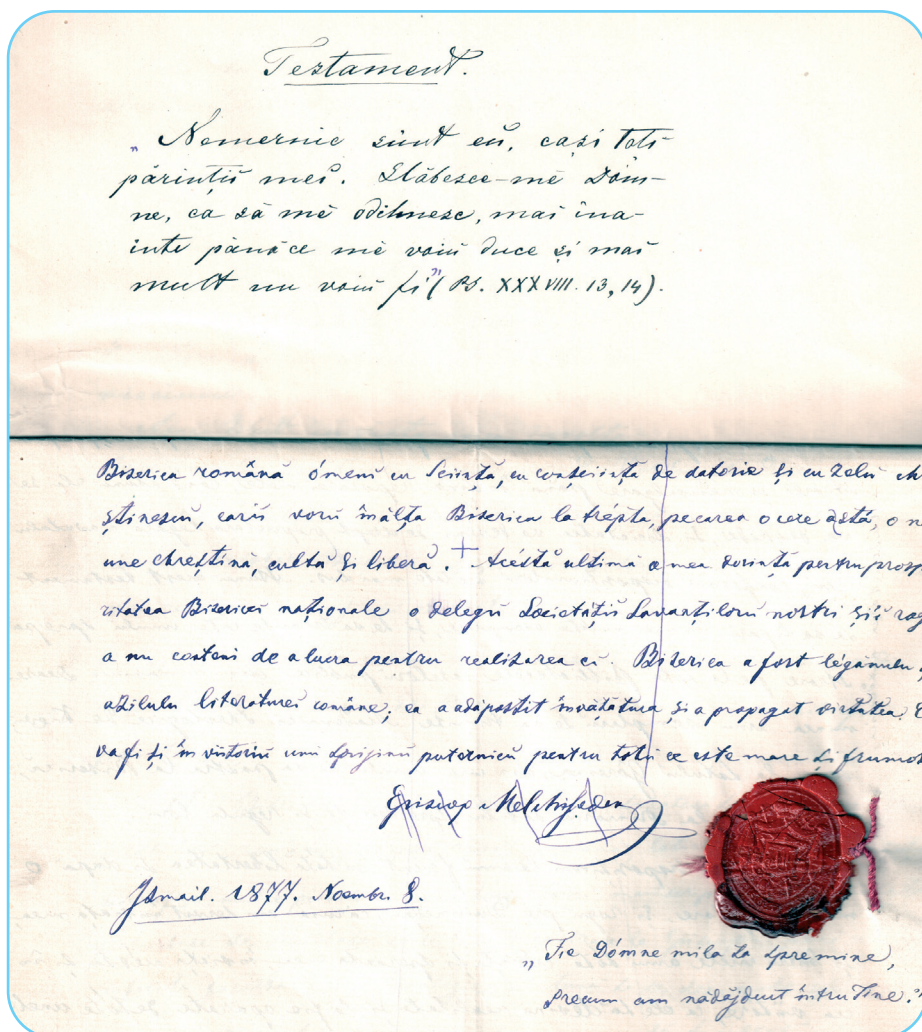 Testament.
„Nemernic sunt eu, cași toți
părinții mei. Slăbesce-mĕ Dóm-
ne, ca să mĕ odihnesc, mai îna-
inte pănă ce mĕ voiu duce și mai
mult nu voiu fi" (Ps. XXXVIII. 13, 14).
Biserica română ómeni cu sciință, cu conșciință de datorie și cu zelu
știnescu, carii voru înălța Biserica la trépta, pe carea o cere astă, o
une chreștină, cultă și liberă. + Acéstă ultimă a mea dorință pentru
ritatea Bisericei naționale o delegu Societății Savanțiloru nostri și-i
a nu conteni de a lucra pentru realisarea ei. Biserica a fost légănulu
asilulu literaturei române; ea a adăpostit învățătura și a propagat virtutea.
va fi și în viitoriu unu sprijinu puternicu pentru totu ce este mare și frumos
Episcop Melchisedec
Ismail. 1877. Noembr. 8.
„Fie Dómne mila ta spre mine,
precum am nădăjduit întru Tine."